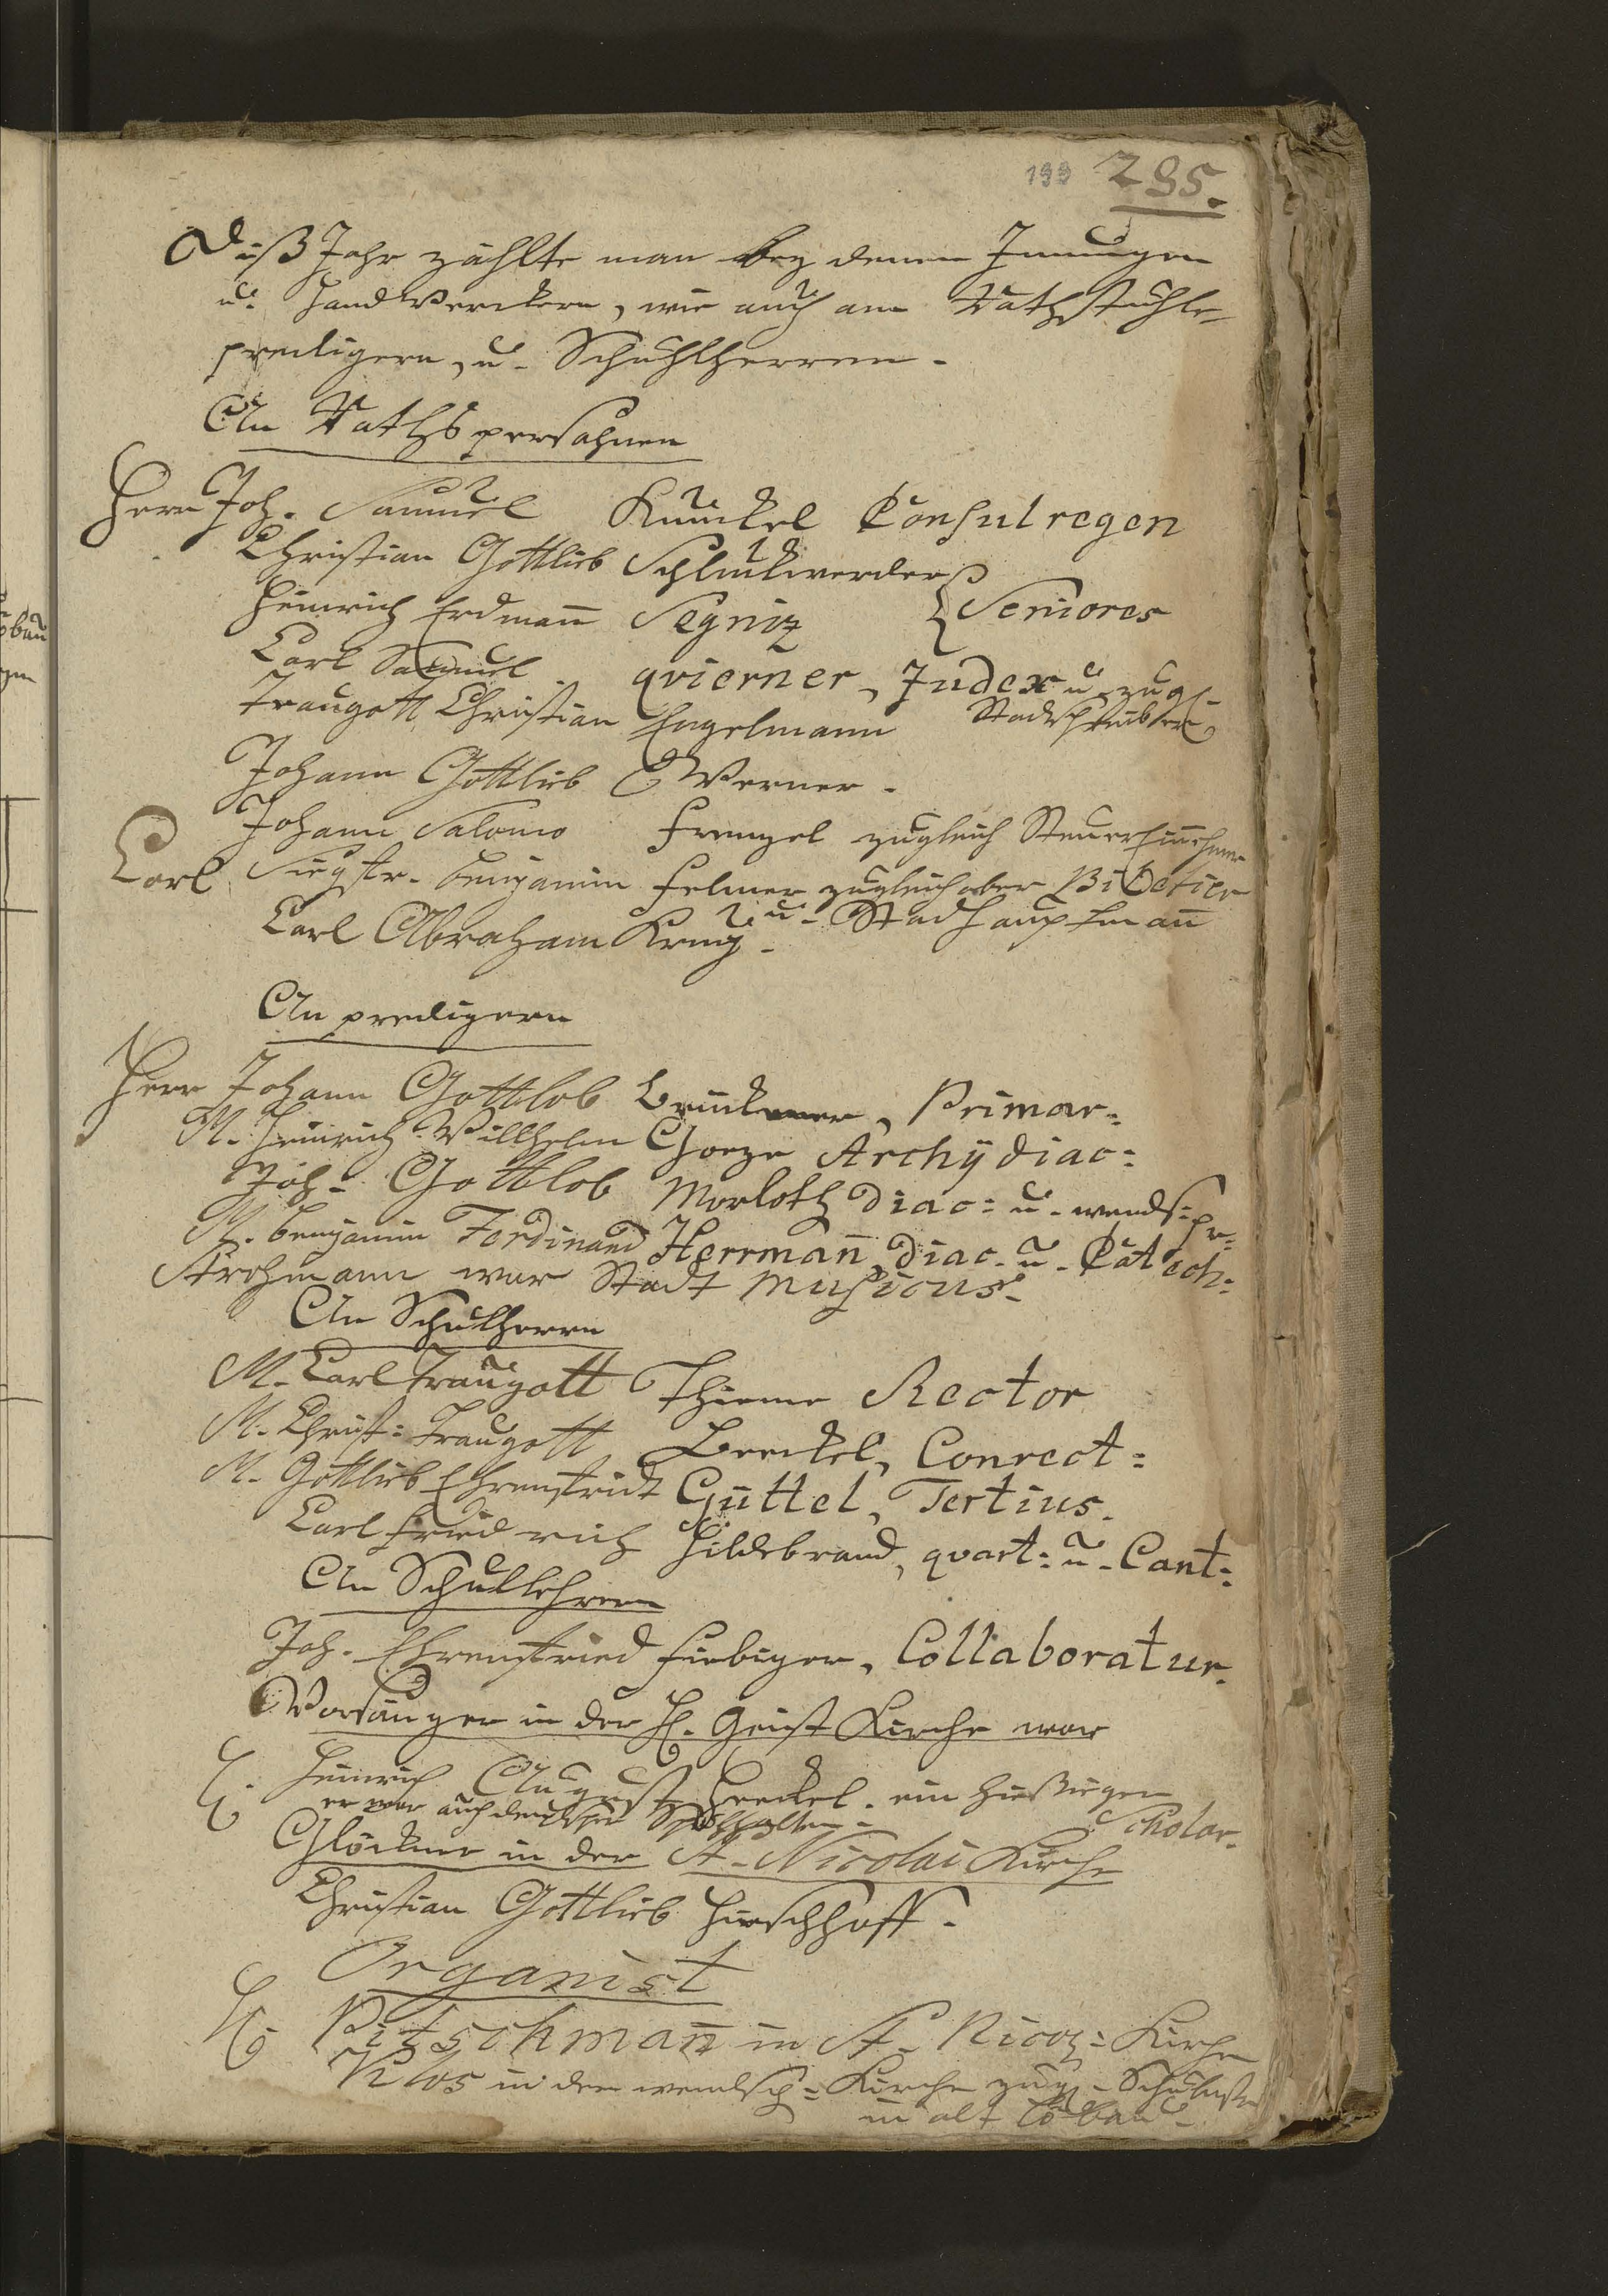 199 295.
Diß Jahr zählte man bey denen Innungen
u. Handwerckern, wie auch am Rathsstuhle,
predigern, u. Schuhlherren.
An Rathspersohnen
Herr Joh. Samuel Kunckel Consul regen
Christian Gottlieb Schluckwerder
Heinrich Erdmañ Segniz } Seniores
Carl Samuel qvierner, Judex u. zugl.
Traugott Christian Engelmann Stadtschreiber
Johann Gottlieb Werner.
Johann Salomo Frenzel zugleich Steuer Einehmer
Carl Siegfr. Benjamin Felmer zugleich aber
Carl Abraham Krug. u. Stadhauptmañ
An predigern
Herr Johann Gottlob Brückner, Primar:
M. Heinrich Willhelm Goeze Archydiac:
Joh. Gottlob Morloth Diac: u. wends: pr:
M. Benjamin Ferdinand Herrmañ, Diac. u. Catech:
Strohmann war Stadt Musicus.
An Schulherrn
M. Carl Traugott Thieme Rector
M. Christ: Traugott Beckel, Conrect:
M. Gottlieb Ehrenfridt Güttel, Tertius.
Carl Friedrich Hildebrand, qvart: u. Cant:
An Schullehrern
Joh. Ehrenfried Fiebiger, Collaboratur.
Vorsänger in der H. Geist Kirche war
H. Heinrich August Heckel. ein hießiger
er war auch Scholar.
Glöckner in der St. Nicolai Kirche
Christian Gottlieb Hirschhoff.
Organist
H. Pitschmañ in St. Nicol: Kirche
Klos in der wendsch: Kirche zugl. Schulmstr
in alt Löbau.